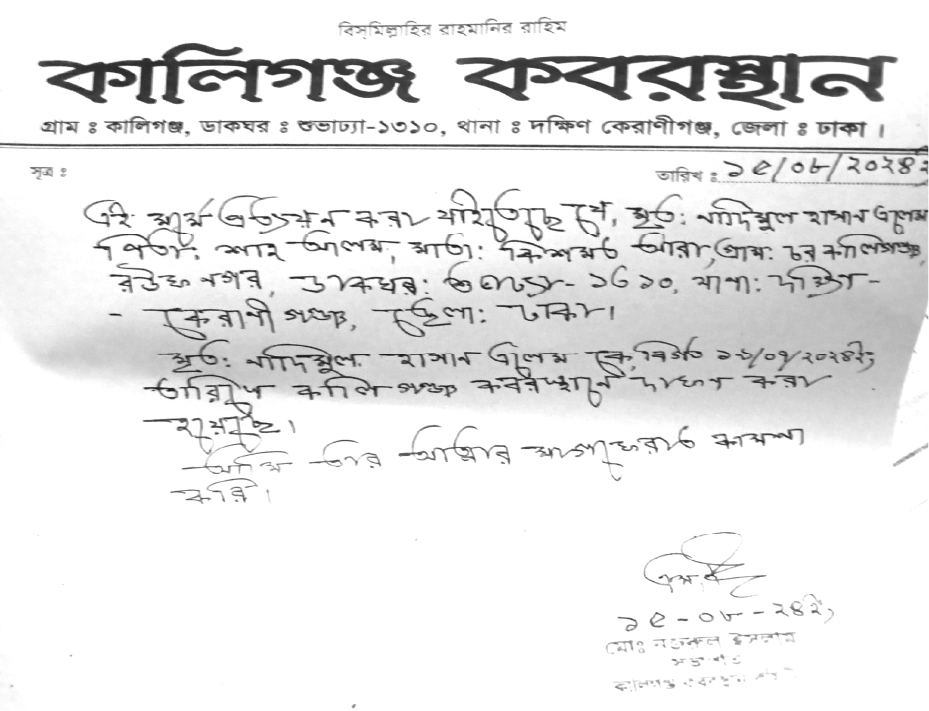 বিসমিল্লাহির রাহমানির রাহিম
কালিগঞ্জ কবরস্থান
গ্রাম ঃ কালিগঞ্জ, ডাকঘর ঃ শুভাঢ্যা-১৩১০, থানা ঃ দক্ষিণ কেরাণীগঞ্জ, জেলা ঃ ঢাকা ।
সূত্র ঃ
তারিখ ঃ ১৫/০৮/২০২৪ইং
এই মর্মে প্রত্যয়ন করা যাইতেছে যে, মৃত: নাদিমুল হাসান এলেম
পিতা: শাহ আলম, মাতা: কিসমত আরা, গ্রাম: চর কালিগঞ্জ,
ডাকঘর: শুভাঢ্যা- ১৩১০, থানা: দক্ষিণ -
- কেরাণীগঞ্জ, জেলা: ঢাকা।
মৃত: নাদিমুল হাসান এলেম কে, বিগত /০৭/২০২৪ইং
তারিখে কালিগঞ্জ কবরস্থানে দাফন করা
হয়েছে।
আমি তার আত্মার মাগফেরাত কামনা
করি।
১৫-০৮-২৪ইং
মোঃ ইসলাম
কালিগঞ্জ